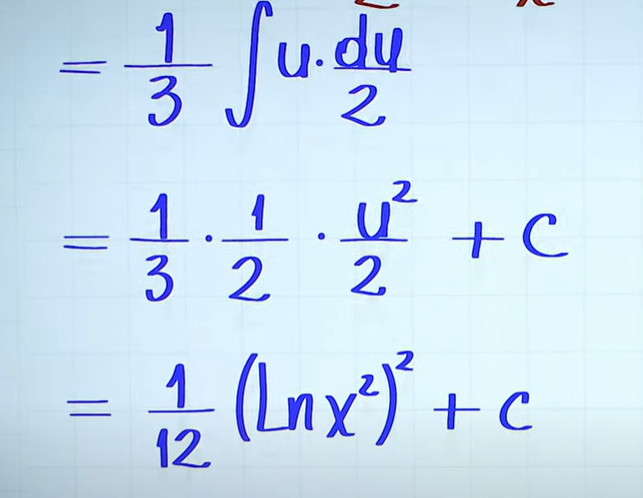 = 1/3 ∫u·du/2
= 1/3 · 1/2 · u²/2 + C
= 1/12 (Lnx²)² + C